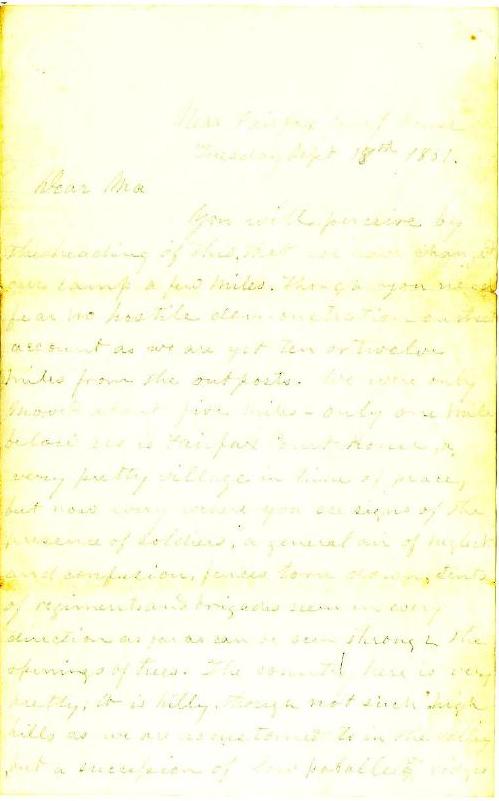 Near Fairfax Court House
Tuesday Sept 18th 1861.
Dear Ma
You will perceive by
the heading of this, that we have changed
our camp a few miles. Though you need
fear no hostile demonstration on that
account as we are yet ten or twelve
miles from the outposts. We were only
moved about five miles - only one mile
below us is Fairfax Court House, a
very pretty village in time of peace,
but now every where you see signs of the
presence of soldiers, a general air of neglect
and confusion, fences torn down, tents
of regiments and brigades seem in every
direction as far as can be seen through the
openings of trees. The country here is very
pretty, it is hilly, though not such high
hills as we are accustomed to in the valley
but a succession of low parallel ridges